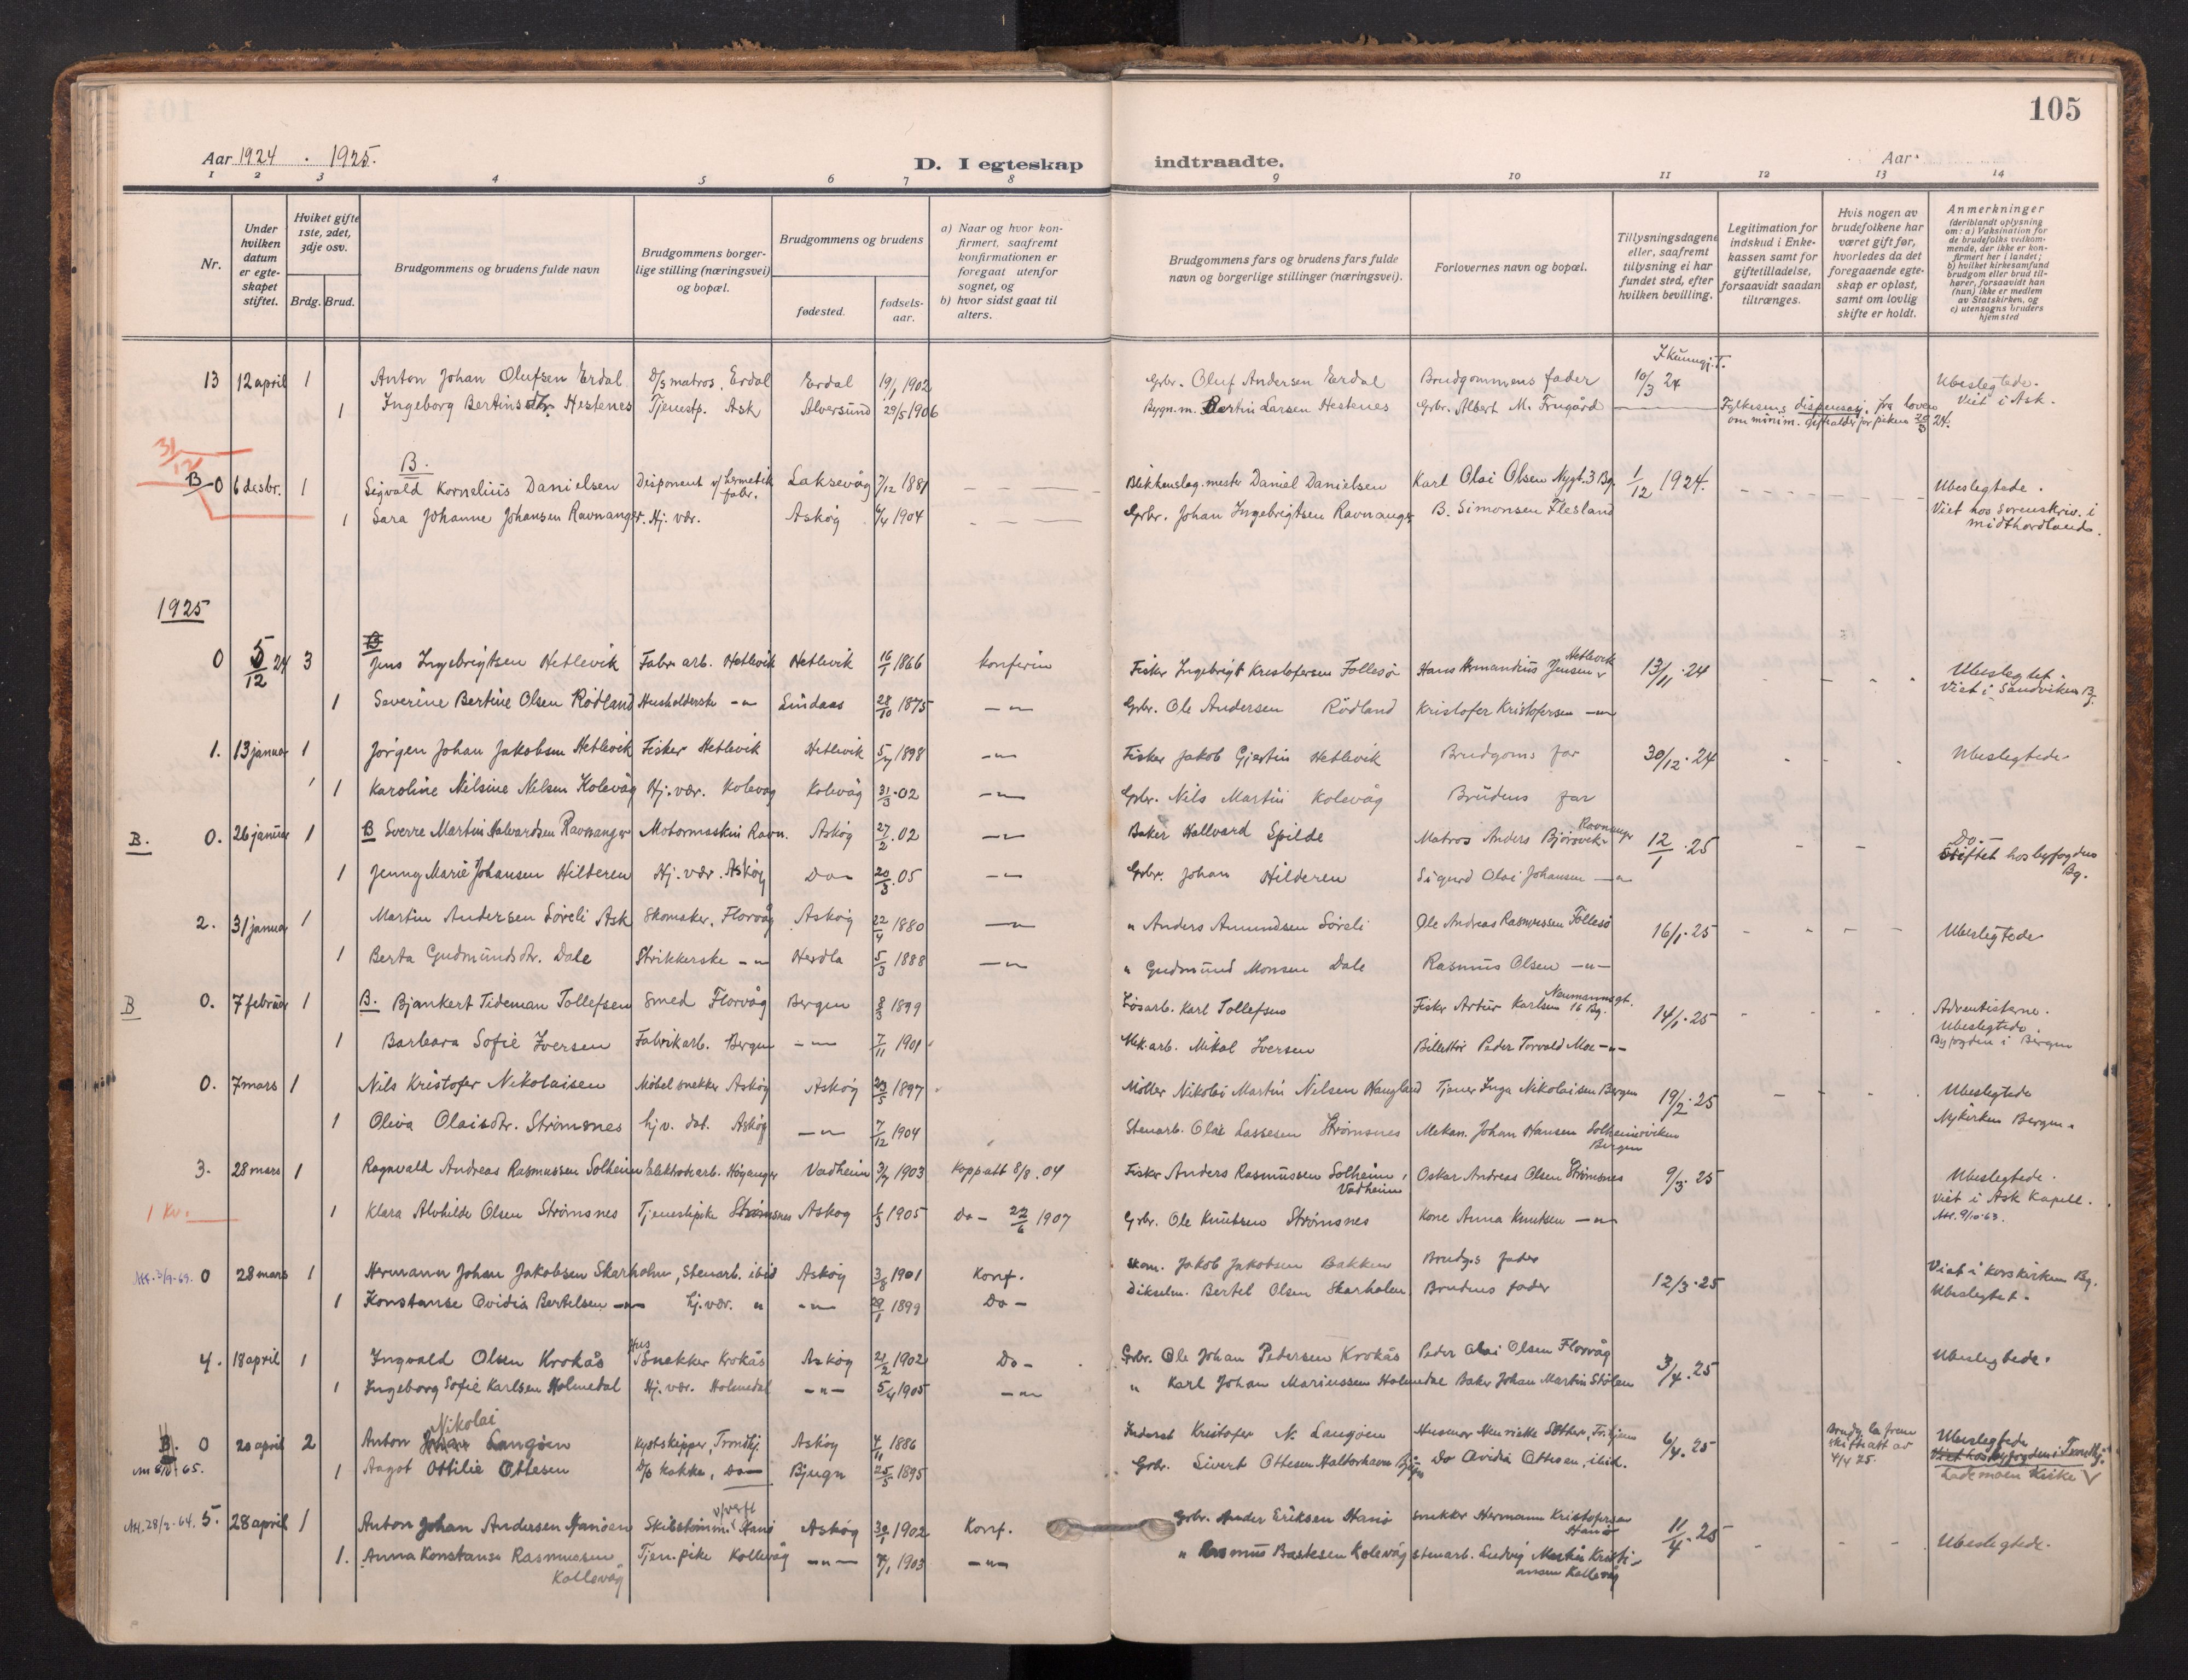 105
Aar 1924 . 1925.
D. I egteskap indtraadte.
Aar
1 2 3 4 5 6 7 8 9 10 11 12 13 14
Nr.
Under hvilken datum er egteskapet stiftet.
Hviket gifte 1ste, 2det, 3dje osv.
Brdg. Brud.
Brudgommens og brudens fulde navn
Brudgommens borgerlige stilling (næringsvei) og bopæl.
Brudgommens og brudens
fødested.
fødselsaar.
a) Naar og hvor konfirmert, saafremt konfirmationen er foregaat utenfor sognet, og
b) hvor sidst gaat til alters.
Brudgommens fars og brudens fars fulde navn og borgerlige stillinger (næringsvei).
Forlovernes navn og bopæl.
Tillysningsdagene eller, saafremt tillysning ei har fundet sted, efter hvilken bevilling.
Legitimation for indskud i Enkekassen samt for giftetilladelse, forsaavidt saadan tiltrænges.
Hvis nogen av brudefolkene har været gift før, hvorledes da det foregaaende egteskap er opløst, samt om lovlig skifte er holdt.
Anmerkninger (deriblandt oplysning om: a) Vaksination for de brudefolks vedkommende, der ikke er konfirmert her i landet; b) hvilket kirkesamfund brudgom eller brud tilhører, forsaavidt han (hun) ikke er medlem av Statskirken, og c) utensogns bruders hjemsted
13 12 april 1 Anton Johan Olufsen Erdal D/s matros, Erdal Erdal 19/1 1902 Grbr. Oluf Andersen Erdal Brudgommens fader 10/3 24 Ubeslegtede.
1 Ingeborg Bertinsdtr. Hestenes Tjenestp. Ask Alversund 29/5 1906 Bygn.m. Bertin Larsen Hestenes Grbr. Albert M. Frugård Fylkesms dispensasj. fra loven Viet i Ask.
om minim. giftealder for piken 20/3 24.
31/12
B.
B 0 6 desbr. 1 Sigvald Kornelius Danielsen Disponent v/ hermetik fabr. Laksevåg 7/12 1881 Blikkenslag.mester Daniel Danielsen Karl Olai Olsen Nygt. 3 Bg. 1/12 1924. Ubeslegtede.
1 Sara Johanne Johansen Ravnanger. Hj. vær. Askøy 6/4 1904 Grbr. Johan Ingebrigtsen Ravnanger B. Simonsen Flesland Viet hos Sorenskriv. i
midthordland.
1925
0 5/12 24 3 Jens Ingebrigtsen Hetlevik Fabr. arb. Hetlevik Hetlevik 16/1 1866 Fisker Ingebrigt Kristofersen Follesø Hans Hermandius Jensen Hetlevik 13/11.24 Ubeslegtet.
Viet i Sandviken Bg.
1 Severine Bertine Olsen Rödland Husholderske -"- Lindaas 28/10 1875 -"- Grbr. Ole Andersen Rödland Kristofer Kristofersen -"-
1. 13 januar 1 Jörgen Johan Jakobsen Hetlevik Fisker Hetlevik Hetlevik 5/7 1898 -"- Fisker Jakob Gjertin Hetlevik Brudgoms far 30/12.24 Ubeslegtede
1 Karoline Nilsine Nelsen Kolevåg Hj. vær. Kolevåg Kolevåg 31/3.02 -"- Grbr. Nils Martin Kolevåg Brudens far
B. 0. 26 januar 1 B Sverre Martin Halvardsen Ravnanger Motormaskin Ravn. Askøy 27/2.02 -"- Baker Hallvard Spilde Matros Anders Bjørsvik Ravnanger 12/1.25 Do.-
Stiftet hos byfogden Bg.
1 Jenny Marie Johansen Hilderen Hj. vær. Askøy Do- 20/3.05 -"- Grbr. Johan Hilderen Sigurd Olai Johansen -"-
2. 31 januar 1 Martin Andersen Søreli Ask Skomaker, Florvåg Askøy 22/4 1880 -"- " Anders Amundsen Søreli Ole Andreas Rasmussen Föllesø 16/1.25 Ubeslegtede
1 Berta Gudmundsdtr. Dale Strikkerske -"- Herdla 5/3 1888 -"- " Gudmund Monsen Dale Rasmus Olsen -"-
B 0. 7 februar 1 B. Bjankert Tideman Tollefsen Smed Florvåg Bergen 8/3 1899 Løsarb. Karl Tollefsen Fisker Artur Karlsen Neumannsgt. 16 Bg. 14/1.25 Adventisterne.
Ubeslegtede.
1 Barbara Sofie Iversen Fabrikarb. Bergen -"- 7/11 1901 Mek.arb. Mikal Iversen Billettör Peder Torvald Moe -"- Byfogden i Bergen
0. 7 mars 1 Nils Kristofer Nikolaisen Möbelsnekker Askøy Askøy 23/5 1897 Möller Nikolai Martin Nilsen Haugland Tjener Inga Nikolaisen Bergen 19/2.25 Ubeslegtede
1 Oliva Olaisdtr. Strømsnes hj v. dat. Askøy -"- 7/12 1904 Stenarb. Olai Lassesen Strømsnes Mekan. Johan Hansen Solheimsviken Bergen Nykirken Bergen.
3. 28 mars 1 Ragnvald Andreas Rasmussen Solheim Elektrodearb. Høyanger Vadheim 3/7 1903 Koppatt 8/8.04 Fisker Anders Rasmussen Solheim, Vadheim Oskar Andreas Olsen Strømsnes 9/3.25 Ubeslegtede.
Viet i Ask Kapell.
1 Kv. 1 Klara Alvhilde Olsen Strømsnes Tjenestepike Strømsnes Askøy 6/3 1905 Do- 22/6 1907 Grbr. Ole Knutsen Strømsnes Kone Anna Knutsen -"- Att. 9/10.63.
0 28 mars 1 Hermann Johan Jakobsen Skarholm, Stenarb. ibid Askøy 3/8 1901 Konf. Skom. Jakob Jakobsen Bakken Brudg.s fader 12/3.25 Viet i Korskirken Bg.
1 Konstanse Ovidia Bertelsen -"- hj. vær. " -"- 29/1 1899 Do- Dikselm. Bertel Olsen Skarholm Brudens fader Ubeslegtet.
4. 18 april 1 Ingvald Olsen Krokås Hus Snekker Krokås Askøy 21/2 1902 Do- Grbr. Ole Johan Pedersen Krokås Peder Olai Olsen Florvåg 3/4.25 Ubeslegtede.
1 Ingeborg Sofie Karlsen Holmedal Hj. vær. Holmedal -"- 5/4 1905 -"- " Karl Johan Mariussen Holmedal Baker Johan Martin Stölen
B. 0 20 april 2 Anton Nikolai Langöen Kystskipper, Trondhj. Askøy 4/11 1886 Inderst Kristofer N. Langöen Husmor Henrikke Sæther, 6/4.25 skifteatt av 4/4 25. Ubeslegtede
Viet hos byfogden i Trondhj.
1 Aagot Ottilie Ottesen D/s kokke, Do- Bjugn 25/3 1895 Grbr. Sivert Ottesen Do Ovidia Ottesen, ibid. Lademoen Kirke
Att. 28/2-64. 5. 28 april 1 Anton Johan Andersen Hanöen Skibstømm. v/verft Hanø Askøy 30/1 1902 Konf. Grbr. Ander Eriksen Hanö snekker Hermann Kristofersen Hanø 11/4.25 Ubeslegtede.
1. Anna Konstanse Rasmussen Kollevåg Tjen. pike Kollevåg -"- 7/1 1903 -"- " Rasmus Bastesen Kolevåg stenarb. Ludvig Martin Kristiansen Kollevåg